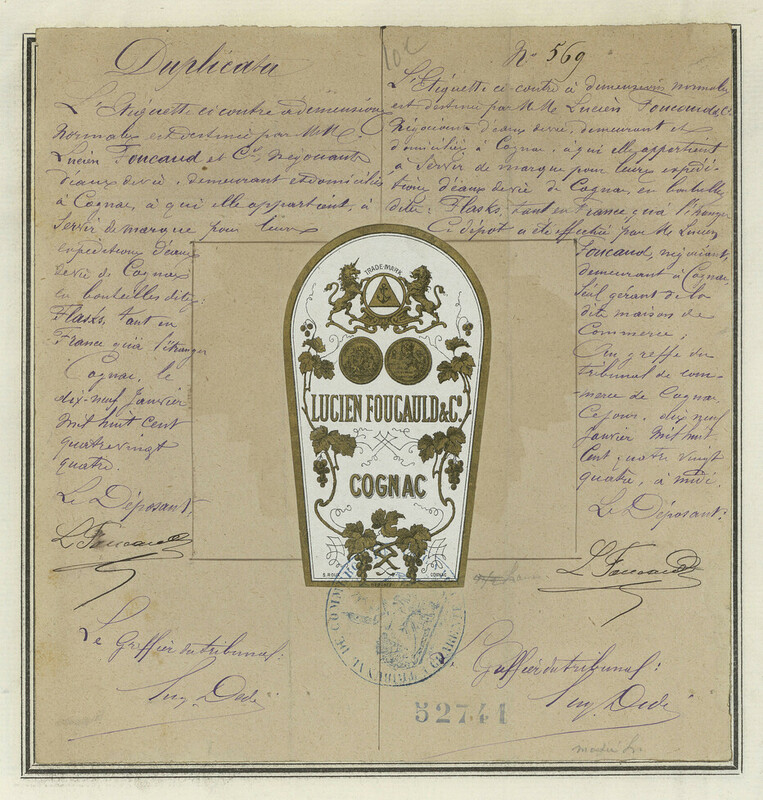 Duplicata
L'Etiquette ci contre à dimension
normales est destinée par MM.
Lucien Foucaud et Cie, négociants
d'eaux de vie, demeurant et domiciliés
à Cognac, à qui elle appartient, à
servir de marque pour leurs
expéditions d'eaux
de vie de Cognac
en bouteilles dites:
Flasks, tant en
France qu'à l'étranger
Cognac, le
dix-neuf Janvier
mil huit cent
quatre vingt
quatre.
Le Déposant:
L. Foucauld
Le Greffier du tribunal:
Eug. Dedé
No 569
L'Etiquette ci-contre à dimensions normales
est destinée par MM. Lucien Foucauld & Cie
Négociants d'eaux de vie, demeurant et
domiciliés à Cognac, à qui elle appartient
à servir de marque pour leurs expédi-
tions d'eaux de vie de Cognac, en bouteilles
dites: Flasks, tant en France qu'à l'étranger
Ce dépot a été effectué par M. Lucien
Foucaud, négociant,
demeurant à Cognac,
seul gérant de la
dite maison de
Commerce;
Au greffe du
tribunal de com-
merce de Cognac
Ce jour, dix neuf
Janvier mil huit
Cent quatre vingt
quatre, à midi.
Le Déposant:
L. Foucauld
Greffier du tribunal:
Eug. Dedé
TRADE MARK
LUCIEN FOUCAULD & Co.
COGNAC
COGNAC
52741